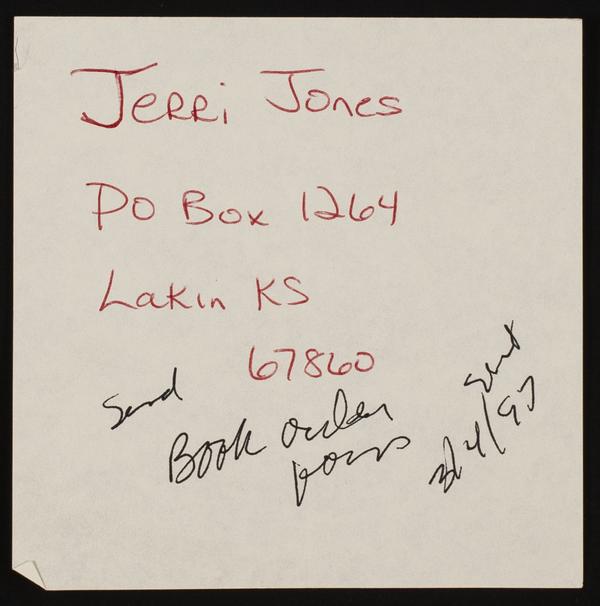 Jerri Jones
PO Box 1264
Lakin KS
67860
Send
Book order
forms
Sent
3/4/97